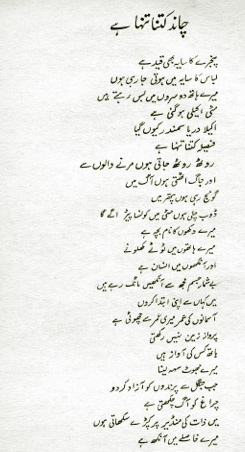 چاند کتنا تنہا ہے
پنجرے کا سایہ بھی قید ہے
لباس کا سایہ میں ہوتی جا رہی ہوں
میرے ہاتھ دوسروں میں بس رہے ہیں
مٹی اکیلی ہو گئی ہے
اکیلا دریا سمندر کیوں گیا
فیصلہ کتنا تنہا ہے
روٹھ روٹھ جاتی ہوں مرنے والوں سے
اور جاگ اٹھتی ہوں آگ میں
گونج رہی ہوں پتھر میں
ڈوب چلی ہوں مٹی میں کونسا پیڑ اگے گا
میرے دکھوں کا نام بچہ ہے
میرے ہاتھوں میں ٹوٹے کھلونے
اور آنکھوں میں انسان ہے
بے شمار جسم مجھ سے آنکھیں مانگ رہے ہیں
میں کہاں سے اپنی ابتدا کروں
آسمانوں کی عمر میری عمر سے چھوٹی ہے
پرواز زمین نہیں رکھتی
ہاتھ کس کی آواز ہیں
میرے جھوٹ سہہ لینا
جب جنگل سے پرندوں کو آزاد کر دو
چراغ کو آگ چکھتی ہے
میں ذات کی منڈیر پر کپڑے سکھاتی ہوں
میرے فاصلے میں آنکھ ہے